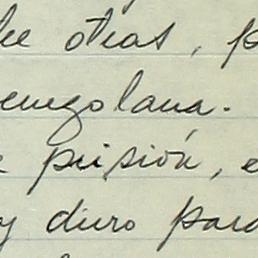 de otras, p
enezolana.
e prisión, e
y duro para